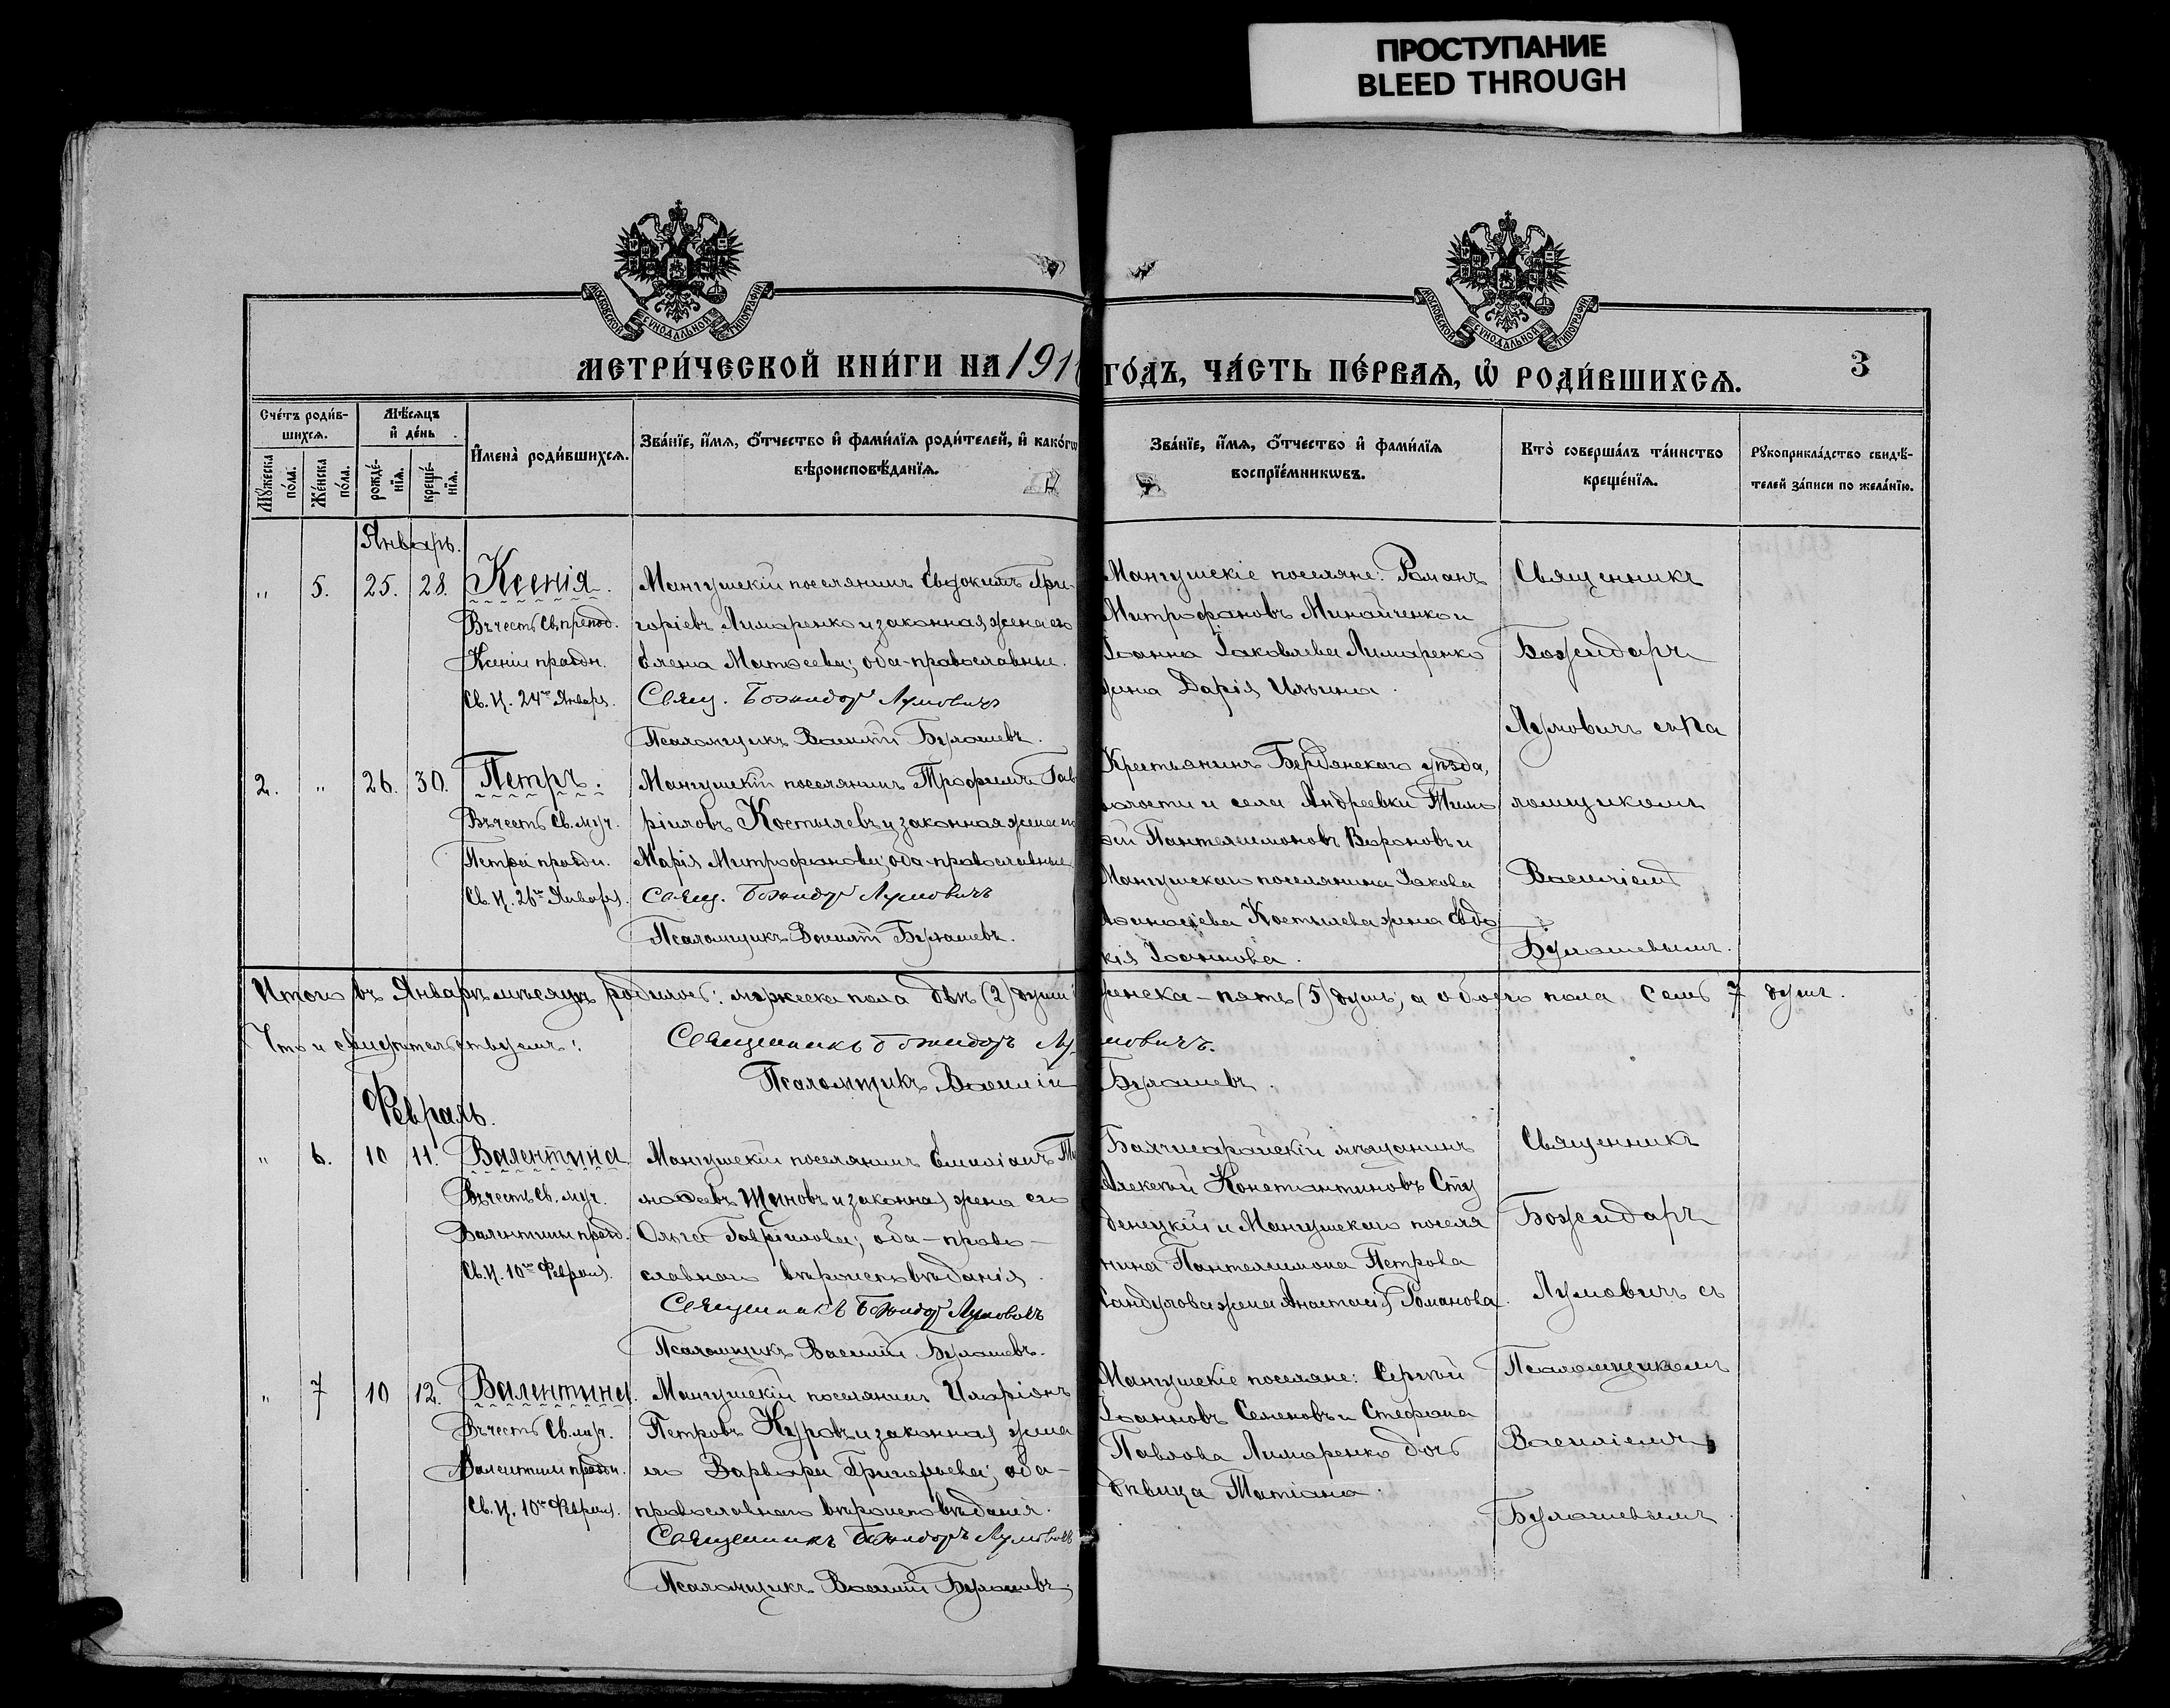 ПРОСТУПАНИЕ
BLEED THROUGH
МОСКОВСКОЙ СѴНОДАЛЬНОЙ ТИПОГРАФІИ
МОСКОВСКОЙ СѴНОДАЛЬНОЙ ТИПОГРАФІИ
МЕТРИ́ЧЕСКОЙ КНИ́ГИ НА 191
ГО́ДЪ, ЧА́СТЬ ПЕ́РВАѦ, Ѡ҆ РОДИ́ВШИХСѦ.
3
Сче́тъ роди́в-
шихсѧ.
Мꙋ́жеска по́ла.
Же́нска по́ла.
Мѣ́сѧцъ
и҆ де́нь
рожде́-
нїѧ.
креще́-
нїѧ.
И҆мена̀ роди́вшихсѧ.
Зва́нїе, и҆́мѧ, ѻ҆́тчество и҆ фами́лїѧ роди́телей, и҆ како́гѡ
вѣроисповѣ́данїѧ.
Зва́нїе, и҆́мѧ, ѻ҆́тчество и҆ фами́лїѧ
воспрїе́мникѡвъ.
Кто̀ соверша́лъ та́инство
креще́нїѧ.
Рꙋкоприкла́дство свидѣ́-
телей за́писи по жела́нїю.
Январь.
„ 5. 25. 28. Ксенія.
Въ честь Св. препод.
Ксеніи праздн.
Св. Ц. 24го Января.
Мангушскій поселянинъ Евдокимъ Гри-
горіевъ Лимаренко и законная жена его
Елена Матѳеева; оба православные.
Свящ. Божидар Лумовичъ
Псаломщикъ Василій Булашевъ.
Мангушскіе поселяне: Романъ
Митрофановъ Минайченко и
Іоанна Іаковлева Лимаренко
жена Дарія Ильина.
Священникъ
Божидаръ
Лумовичъ съ Пса
2. „ 26. 30. Петръ.
Въ честь Св. муч.
Петра праздн.
Св. Ц. 26го Января.
Мангушскій поселянинъ Трофимъ Гав
ріиловъ Костылевъ и законная жена его
Марія Митрофанова; оба православные
Свящ. Божидар Лумовичъ
Псаломщикъ Василій Булашевъ.
Крестьянинъ Бердянскаго уѣзда,
волости и села Андреевки Тимо
ѳей Пантелеимоновъ Вороновъ и
Мангушскаго поселянина Іакова
Костылева жена Евдо
кія Іоаннова.
ломщикомъ
Василіемъ
Булашевымъ.
Итого въ Январѣ мѣсяцѣ родилось: мужеска пола двѣ (2) души
женска – пять (5) душъ, а обоего пола семь 7 душъ.
Что и свидѣтельствуемъ:
Священникъ Божидаръ Лумовичъ.
Псаломщикъ Василій Булашевъ.
Февраль.
„ 6. 10 11. Валентина
Въ честь Св. муч.
Валентины празд.
Св. Ц. 10го Февраля.
Мангушскій поселянинъ Емиліанъ Ти
моѳеевъ Щиновъ и законная жена его
Ольга Гавріилова; оба – право –
славнаго вѣроисповѣданія.
Священникъ Божидар Лумовичъ
Псаломщикъ Василій Булашевъ.
Бахчисарайскій мѣщанинъ
Алексѣй Константиновъ Сту
денецкій и Мангушскаго поселя
нина Пантелеимона Петрова
Сандулова жена Анастасія Романова.
Священникъ
Божидаръ
Лумовичъ съ
„ 7 10 12. Валентина.
Въ честь Св. муч.
Валентины праздн.
Св. Ц. 10го Февраля.
Мангушскій поселянинъ Иларіонъ
Петровъ Журовъ и законная жена
его Варвара Григорьева; оба –
православнаго вѣроисповѣданія.
Священникъ Божидаръ Лумовичъ
Псаломщикъ Василій Булашевъ.
Мангушскіе поселяне: Сергій
Іоанновъ Семеновъ и Стефана
Павлова Лимаренко дочь
дѣвица Татіана.
Псаломщикомъ
Василіемъ
Булашевымъ.